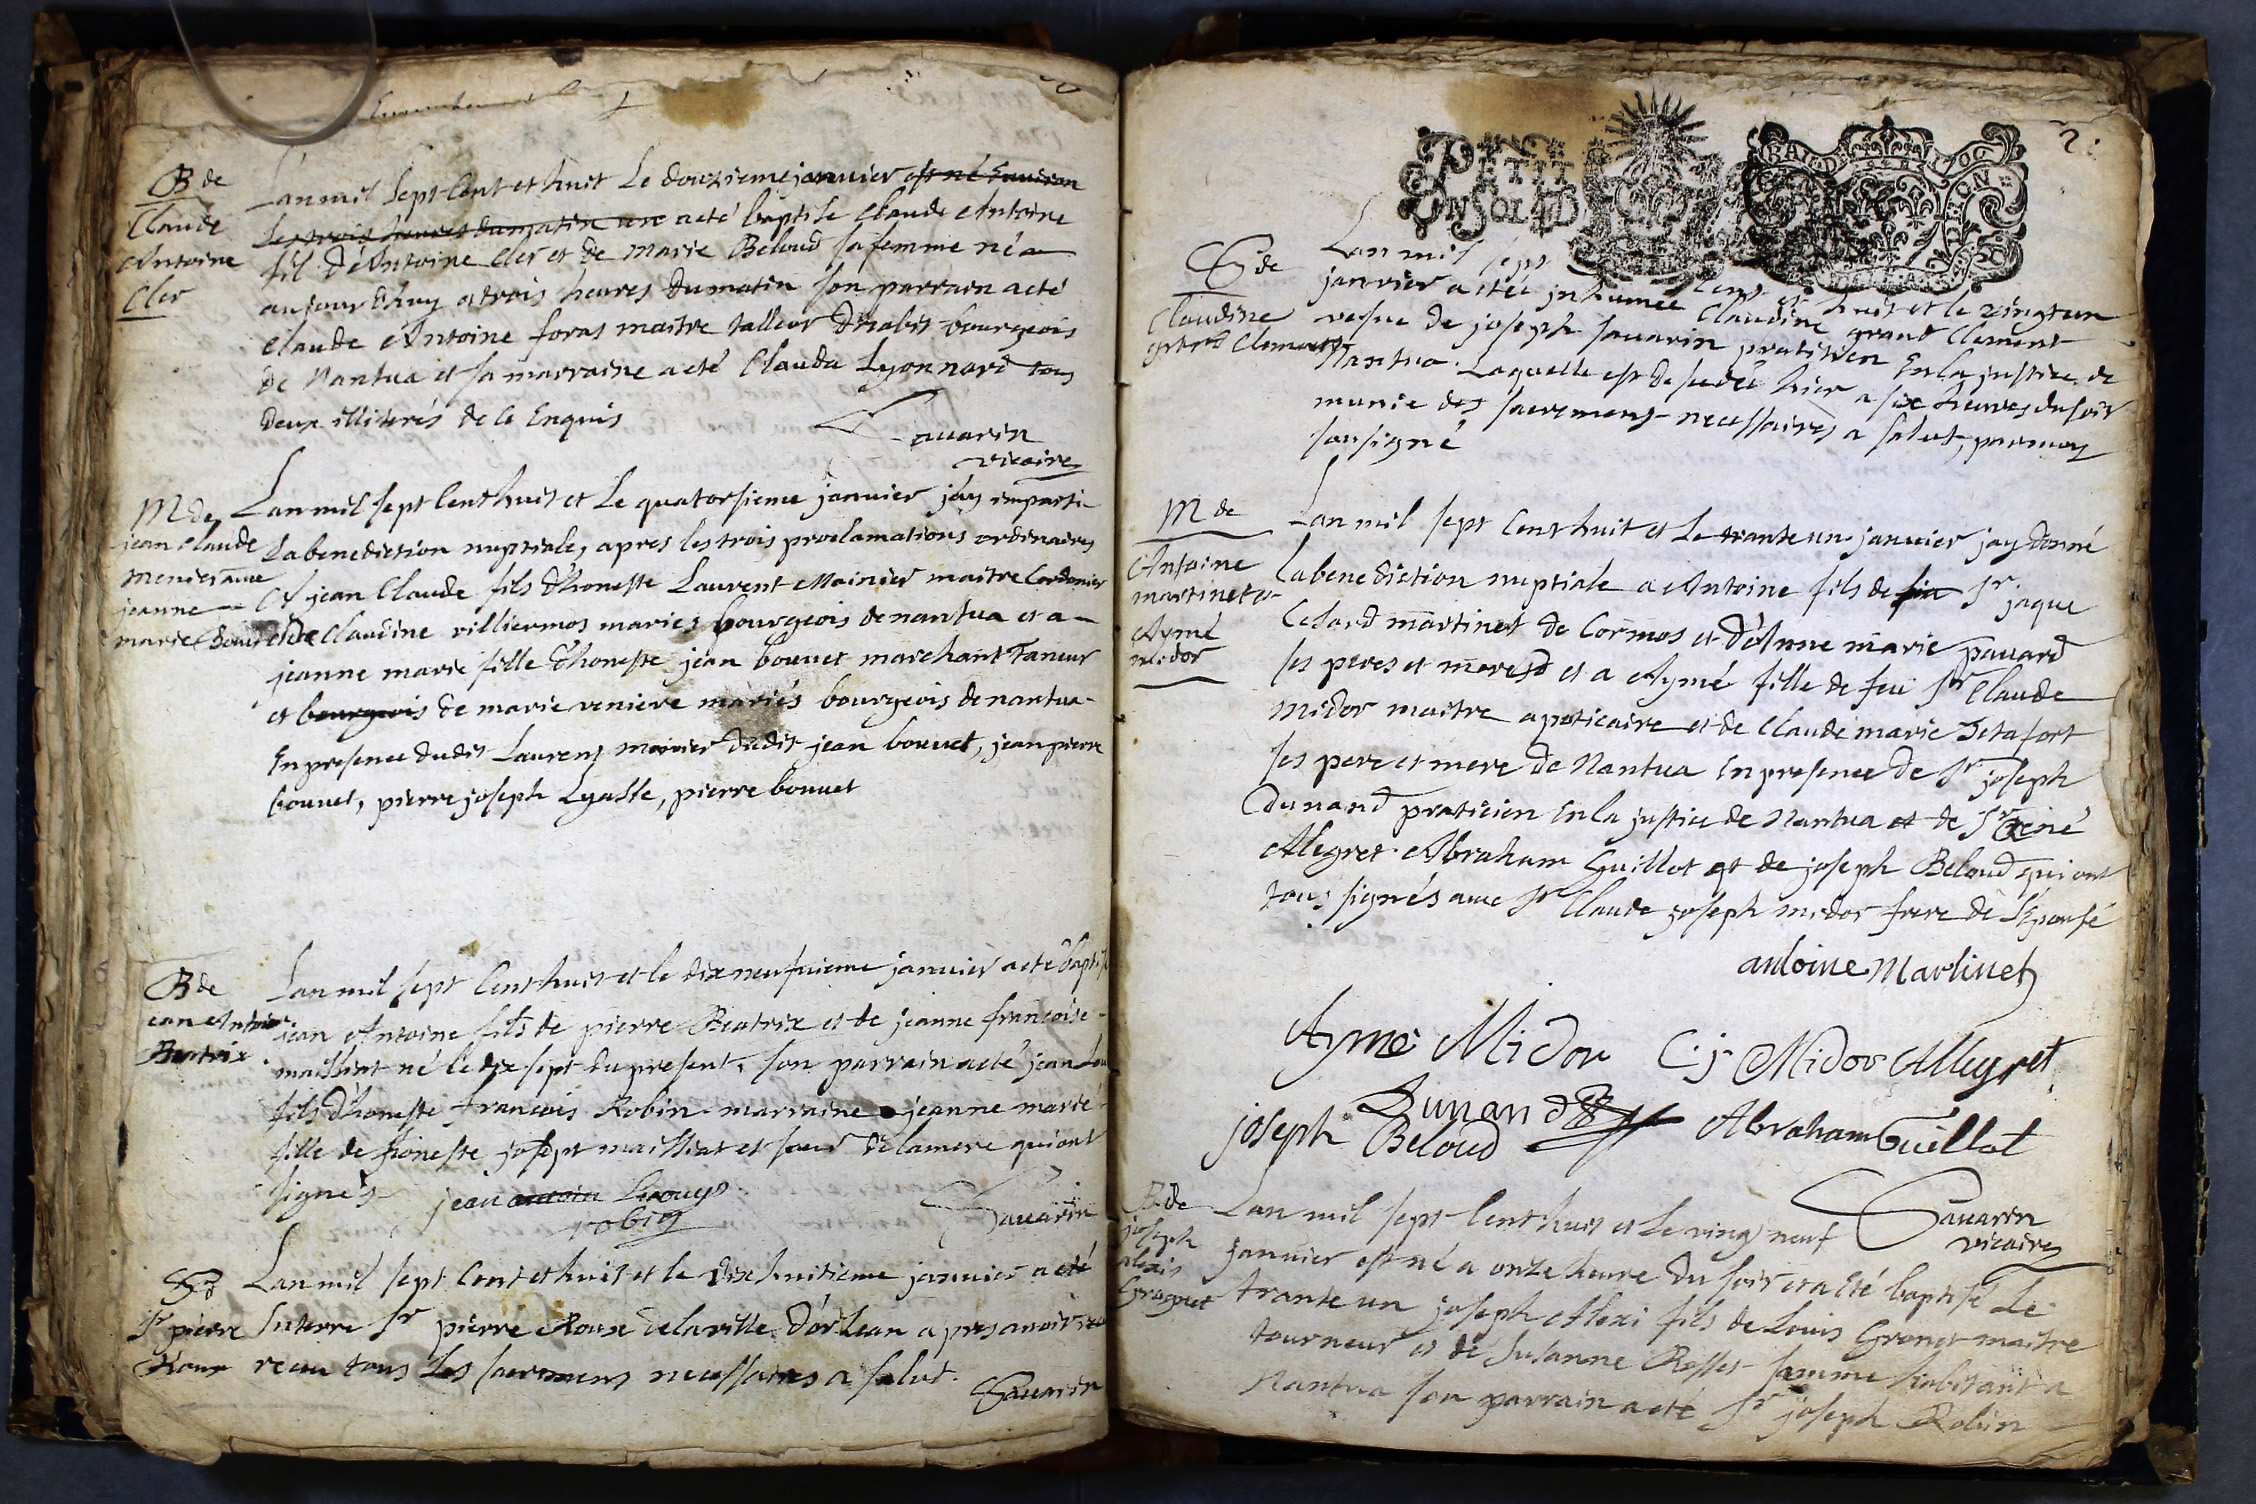 B de
Claude
Antoine
Cler
Lan mil sept Cent et huit Le douzieme janvier est né Environ
Les trois heures du matin un a eté baptisé Claude Antoine
fil d'Antoine Cler et de Marie Beloud sa femme né
aujourdhuy a trois heures du matin son parrain a eté
Claude Antoine foras maitre talleur d'habit bourgeois
de Nantua et sa marraine a eté Clauda Lyonnard tous
deux illiterés de ce Enquis
Savarin
vicaire
M de
jean Claude
menier avec
jeanne
marie Bouvet
Lan mil sept Cent huit et Le quatorsieme janvier jay imparti
La benediction nuptiale, apres les trois proclamations ordinaires
A jean Claude fils d'honeste Laurent Mainier maitre Cordonier
et de Claudine villiermos mariés bourgeois de nantua et a
jeanne marie fille d'honeste jean bouvet marchant Taneur
et bourgeois de marie veniere mariés bourgeois de nantua
En presence dudit Laurens mainier dudit jean bouvet, jean pierre
bouvet, pierre joseph Lyasse, pierre bouvet
B de
jean Antoine
Beatrix
Lan mil sept Cent huit et le dix neufvieme janvier a eté baptisé
jean Antoine fils de pierre Beatrix et de jeanne francoise
maissiat né le dix sept du present, son parrain a eté jean Lou
fils d'honeste francois Robin marraine jeanne marie
fille de honeste joseph maissiat et soeur de la mere qui ont
signés jean Lrouys
robin
Savarin
Sr pierre
Roux
Lan mil sept Cent et huit et le dix huitieme janvier a eté
Enterre Sr pierre Roux de la ville d'orlean apres avoir
receu tous Les sacremens necessaires a salut.
Savarin
2
PETIT
EN SOL 4 D
de
Claudine
grand Clement
Lan mil sept Cent et huit et le vingt un
janvier a eteé jnhumée Claudine grand Clement
vesve de joseph savarin pratitien En la justice de
Nantua. Laquelle est desedeé hier a six heures du soir
munie des sacremens necessaires a salut, par moy
sousigné
M de
Antoine
martinet a
Aymé
midor
Lan mil sept Cent huit et Le trante un janvier jay donné
La benediction nuptiale a Antoine fils de feu Sr jaque
Cesard martinet de Cormos et d'Anne marie pavard
ses peres et meres et a Aymé fille de feu Sr Claude
Midor maitre apoticaire et de Claude marie Jetafort
ses pere et mere de Nantua En presence de Sr joseph
Dunand praticien En la justice de Nantua et de Sr René
Alegret Abraham Guillot et de joseph Beloud qui ont
tous signés avec Sr Claude joseph midor frere de L'Epousé
antoine Martinet
Aymé Midor C. j. Midor Allegret
Dunand
joseph Beloud Abraham Guillot
Savarin
vicaire
B de
joseph
alexis
Gronet
Lan mil sept Cent huit et Le ving neuf
janvier est né a onze heure du soir et a Eté baptisé Le
trante un joseph Alexi fils de Louis Gronet maitre
tourneur et de Susanne Rosset famme habitant a
Nantua son parrain a eté Sr joseph Robin